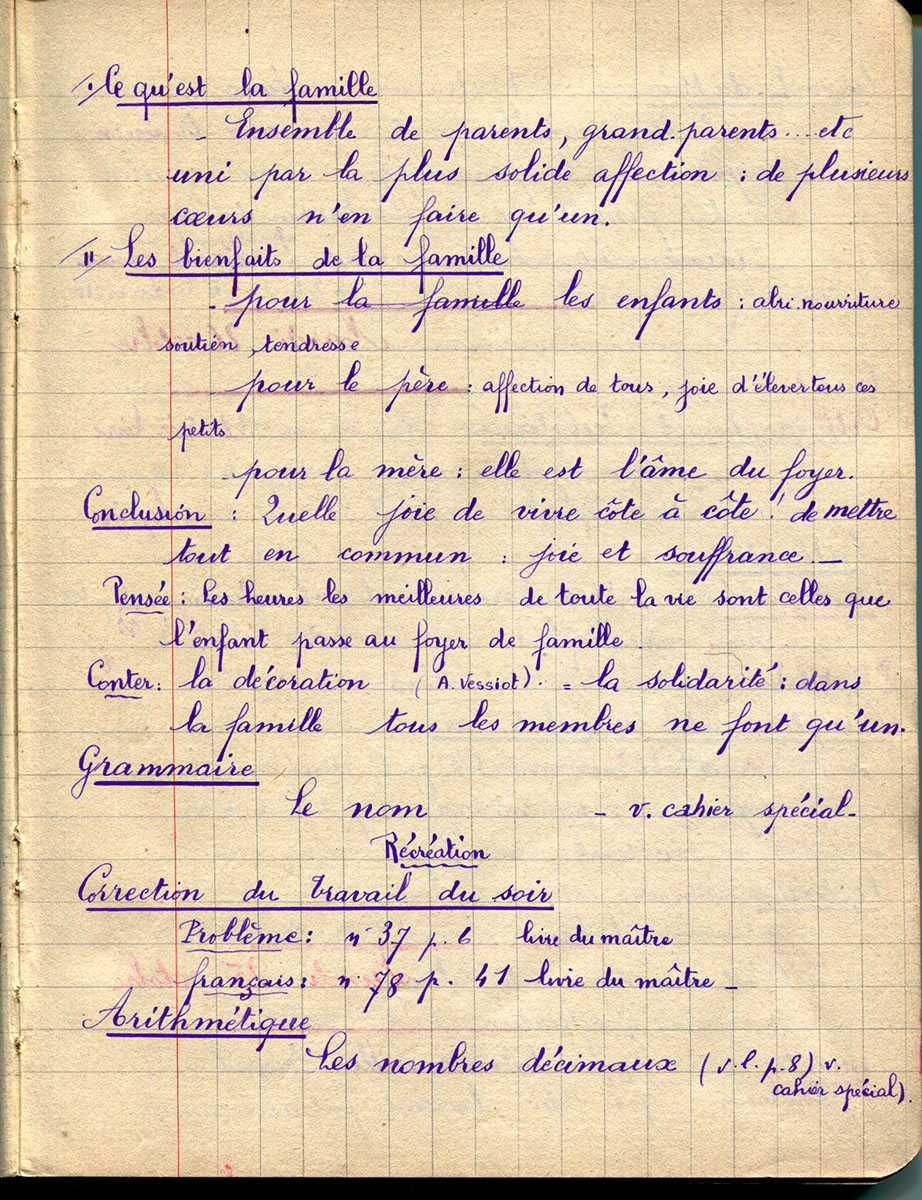 I/ Ce qu'est la famille
- Ensemble de parents, grand.parents... etc
uni par la plus solide affection : de plusieurs
cœurs n'en faire qu'un.
II/ Les bienfaits de la famille
- pour la famille les enfants : abri. nourriture
soutien, tendresse
pour le père : affection de tous, joie d'élever tous ces
petits
pour la mère : elle est l'âme du foyer.
Conclusion : Quelle joie de vivre côte à côte ! de mettre
tout en commun : joie et souffrance. -
Pensée : Les heures les meilleures de toute la vie sont celles que
l'enfant passe au foyer de famille
Conter : la décoration (A. Vessiot). = la solidarité : dans
la famille tous les membres ne font qu'un.
Grammaire
Le nom - v. cahier spécial -
Récréation
Correction du travail du soir
Problème : n° 37 p. 6 livre du maître
français : n° 78 p. 41 livre du maître -
Arithmétique
Les nombres décimaux (v. l. p. 8) v.
cahier spécial).